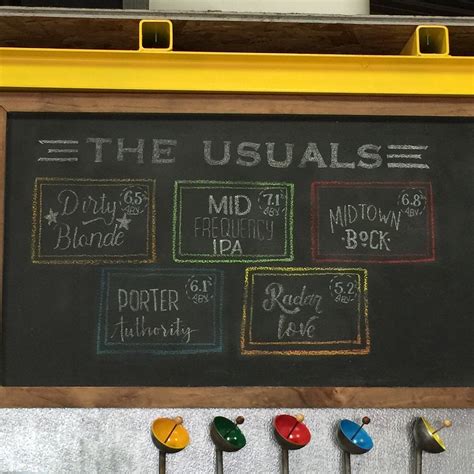 THE USUALS
Dirty
Blonde
6.5
ABV
MID
FREQUENCY
IPA
7.1%
ABV
MIDTOWN
BOCK
6.8%
ABV
PORTER
Authority
6.1%
ABV
Radar
Love
5.2
ABV